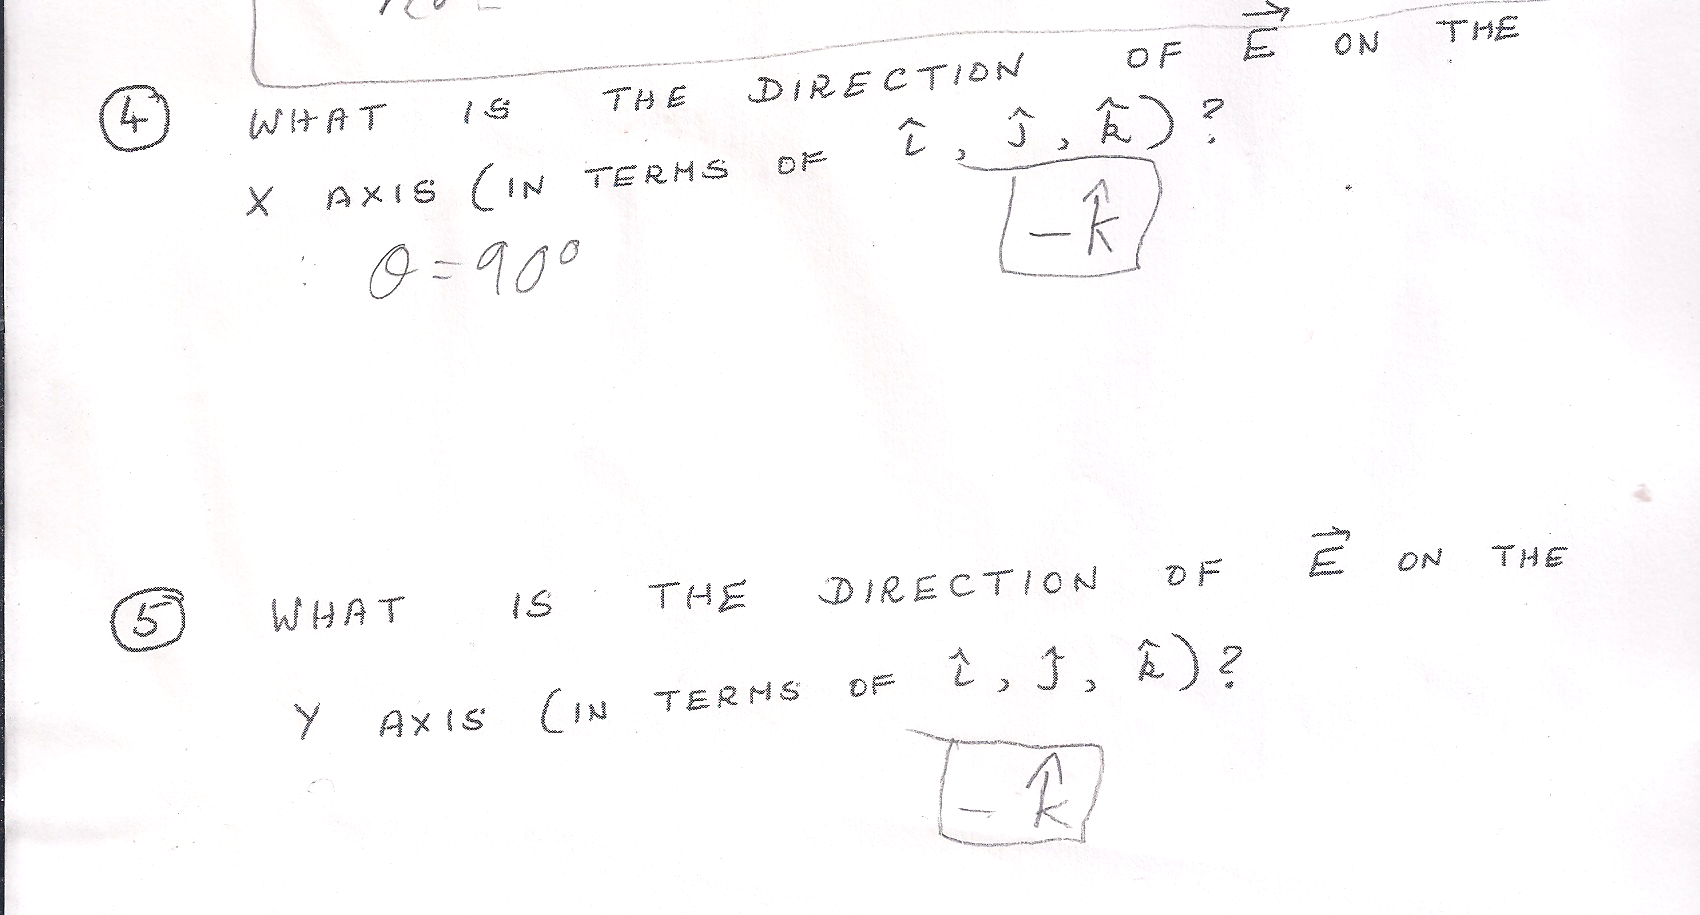 ④ WHAT IS THE DIRECTION OF E⃗ ON THE
X AXIS (IN TERMS OF î, ĵ, k̂)?
-k̂
θ=90°
⑤ WHAT IS THE DIRECTION OF E⃗ ON THE
Y AXIS (IN TERMS OF î, ĵ, k̂)?
-k̂